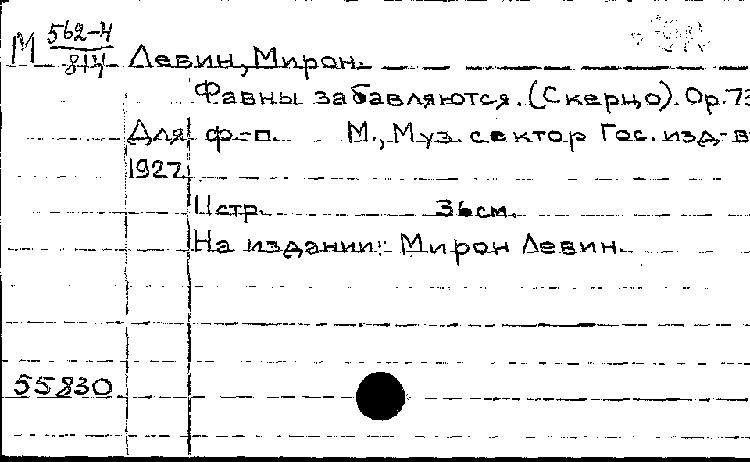 М 562-4
814 Левин, Мирон.
Фавны забавляются. (Скерцо). Ор. 73
Для ф-п. М., Муз. сектор Гос. изд-в
1927
11 стр. 36 см.
На издании: Мирон Левин.
55830